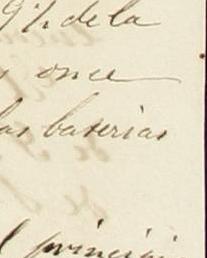 9½ de la
once
las baterias